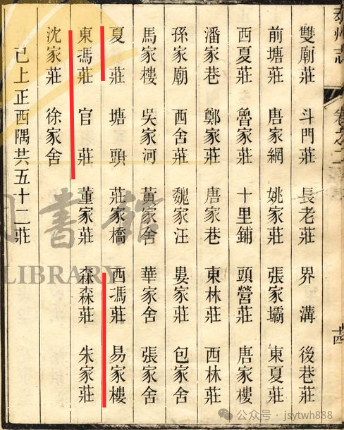 雙廟莊　斗門莊　長老莊　界溝　後巷莊
前塘莊　唐家網　姚家莊　張家壩　東夏莊
西夏莊　魯家莊　十里鋪　頭營莊　唐家樓
潘家巷　鄭家莊　唐家巷　東林莊　西林莊
孫家廟　西舍莊　魏家汪　婁家莊　包家舍
馬家樓　吳家河　黃家舍　華家舍　張家舍
夏莊　塘頭　莊家橋　西馮莊　易家樓
東馮莊　官莊　董家莊　森森莊　朱家莊
沈家莊　徐家舍
已上正西隅共五十二莊
LIBRARY
公众号・jsytwh888